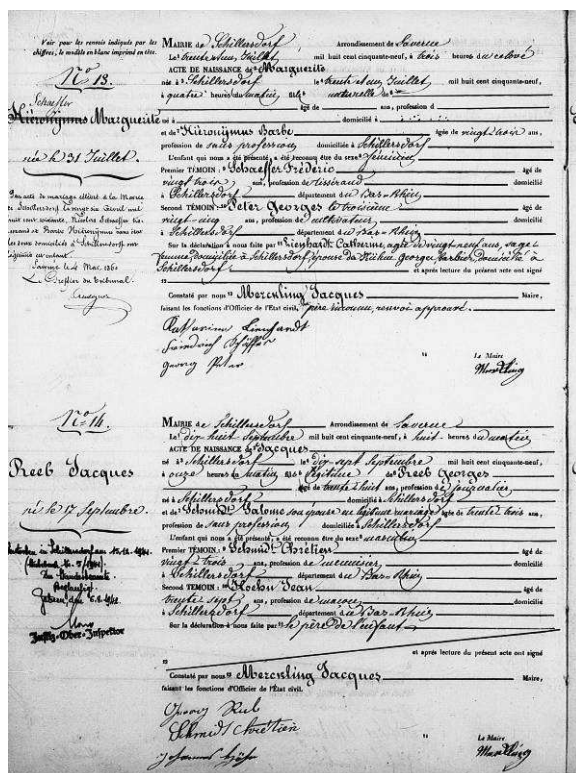 Voir pour les renvois indiqués par les
chiffres, le modèle en blanc imprimé en tête.
N° 13.
Schaeffer
Hiéronÿmus Marguerite
née le 31 Juillet.
Par acte de mariage célébré à la Mairie
de Schillersdorf le vingt six Avril mil
huit cent soixante, Nicolas Schaeffer
et Barbe Hiéronÿmus
tous deux domiciliés à Schillersdorf ont
légitimé cet enfant.
Saverne le 4 Mai 1860
Le Greffier du tribunal
MAIRIE de Schillersdorf Arrondissement de Saverne
Le trente et un Juillet mil huit cent cinquante-neuf, à trois heures du relevé
ACTE DE NAISSANCE de Marguerite
né à Schillersdorf le trente et un Juillet mil huit cent cinquante-neuf,
à quatre heures du matin fille naturelle de
âgé de ans, profession d
né à domicilié à
et de Hiéronÿmus Barbe âgée de vingt trois ans,
profession de sans profession domiciliée à Schillersdorf
L'enfant qui nous a été présenté, a été reconnu être du sexe féminin
Premier TÉMOIN : Schaeffer Frédéric âgé de
vingt trois ans, profession de tisserand domicilié
à Schillersdorf département du Bas-Rhin
Second TÉMOIN : Peter Georges le troisième âgé de
vingt-cinq ans, profession de cultivateur domicilié
à Schillersdorf département du Bas-Rhin
Sur la déclaration à nous faite par Lienhardt Catherine, agée de vingt-neuf ans, sage-
femme, domiciliée à Schillersdorf, épouse de Georges, domicilié à
Schillersdorf et après lecture du présent acte ont signé
Constaté par nous Merckling Jacques Maire,
faisant les fonctions d'Officier de l'État civil. père inconnu, renvoi approuvé.
Katharina Lienhardt
Friedrich Schäffer
Georg Peter
Le Maire
Merckling
N° 14.
Reeb Jacques
né le 17 Septembre.
Schillersdorf am
Justiz-Ober-Inspektor
MAIRIE de Schillersdorf Arrondissement de Saverne
Le dix-huit Septembre mil huit cent cinquante-neuf, à huit heures du matin
ACTE DE NAISSANCE de Jacques
né à Schillersdorf le dix-sept Septembre mil huit cent cinquante-neuf,
à onze heures du matin fils légitime de Reeb Georges
âgé de trente huit ans, profession de journalier
né à Schillersdorf domicilié à Schillersdorf
et de Schmidt Salomé son épouse en légitime mariage âgée de trente trois ans,
profession de sans profession domiciliée à Schillersdorf
L'enfant qui nous a été présenté, a été reconnu être du sexe masculin
Premier TÉMOIN : Schmidt Chrétien âgé de
vingt-trois ans, profession de menuisier domicilié
à Schillersdorf département du Bas-Rhin
Second TÉMOIN : Jean âgé de
trente sept ans, profession de domicilié
à Schillersdorf département du Bas-Rhin
Sur la déclaration à nous faite par le père de l'enfant
et après lecture du présent acte ont signé
Constaté par nous Merckling Jacques Maire,
faisant les fonctions d'Officier de l'État civil.
Georg Reeb
Schmidt Chrétien
Johannes
Le Maire
Merckling